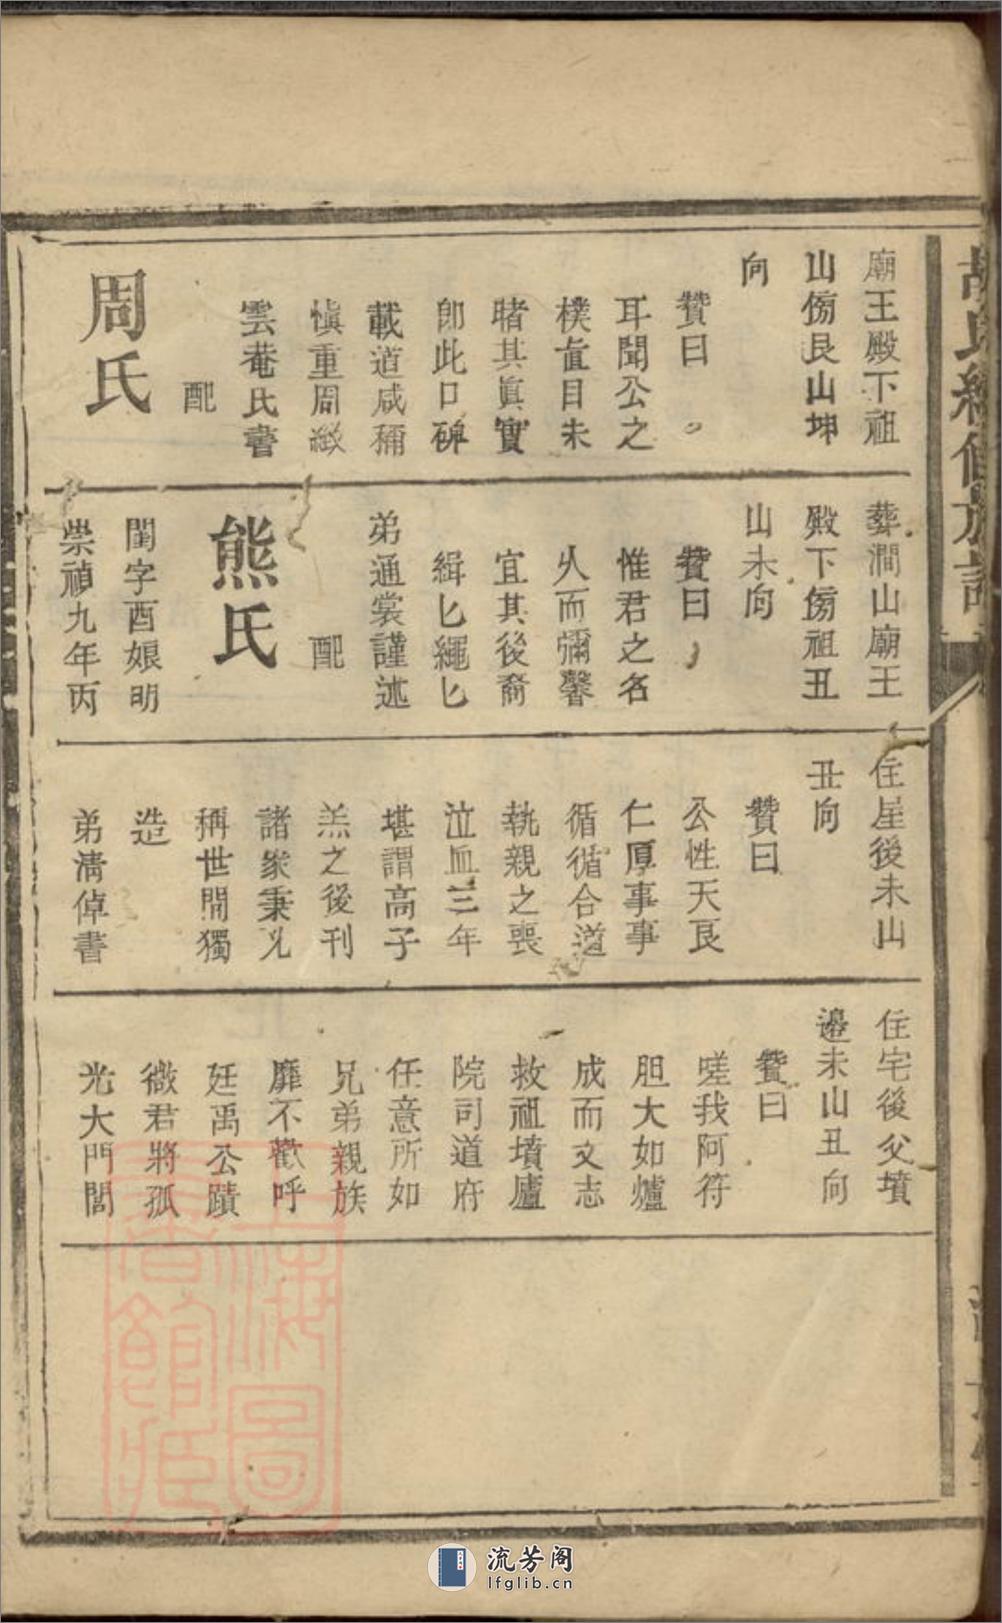 廟王殿下祖
山傍艮山坤
向
贊曰
耳聞公之
樸直目未
睹其眞實
卽此口碑
載道咸稱
愼重周緻
雲菴氏書
配
周氏
葬澗山廟王
殿下傍祖丑
山未向
贊曰
惟君之名
久而彌馨
宜其後裔
緝匕繩匕
弟通裳謹述
配
熊氏
閨字酉娘明
崇禎九年丙
住屋後未山
丑向
贊曰
公性天良
仁厚事事
循循合道
執親之喪
泣血三年
堪謂高子
羔之後刊
諸衆秉凡
稱世間獨
造
弟清倬書
住宅後父墳
邊未山丑向
贊曰
嗟我阿符
胆大如爐
成而文志
救祖墳廬
院司道府
任意所如
兄弟親族
靡不歡呼
廷禹公蹟
微君將孤
光大門閭
上海圖書館藏
流芳阁
lfglib.cn